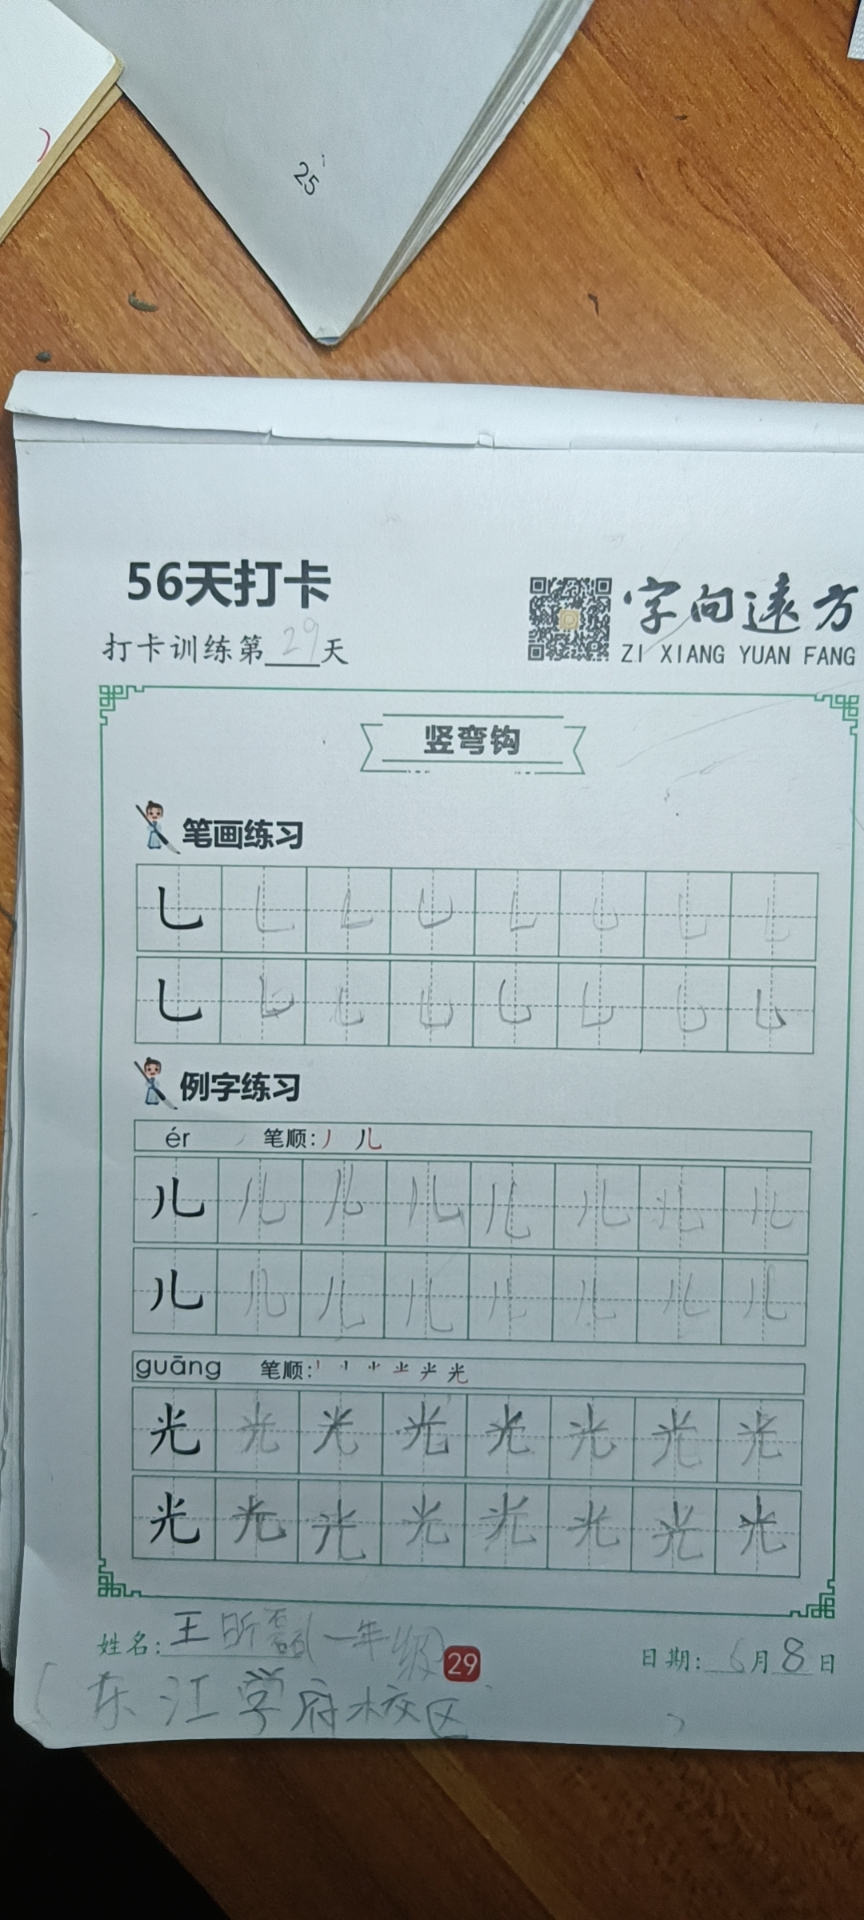 25
56天打卡
打卡训练第29天
字向远方
ZI XIANG YUAN FANG
竖弯钩
笔画练习
乚 乚 乚 乚 乚 乚 乚 乚
乚 乚 乚 乚 乚 乚 乚 乚
例字练习
ér 笔顺: 丿 儿
儿 儿 儿 儿 儿 儿 儿 儿
儿 儿 儿 儿 儿 儿 儿 儿
guāng 笔顺:
光 光 光 光 光 光 光 光
光 光 光 光 光 光 光 光
姓名: 王昕磊(一年级) 29 日期: 6月8日
(东江学府校区)